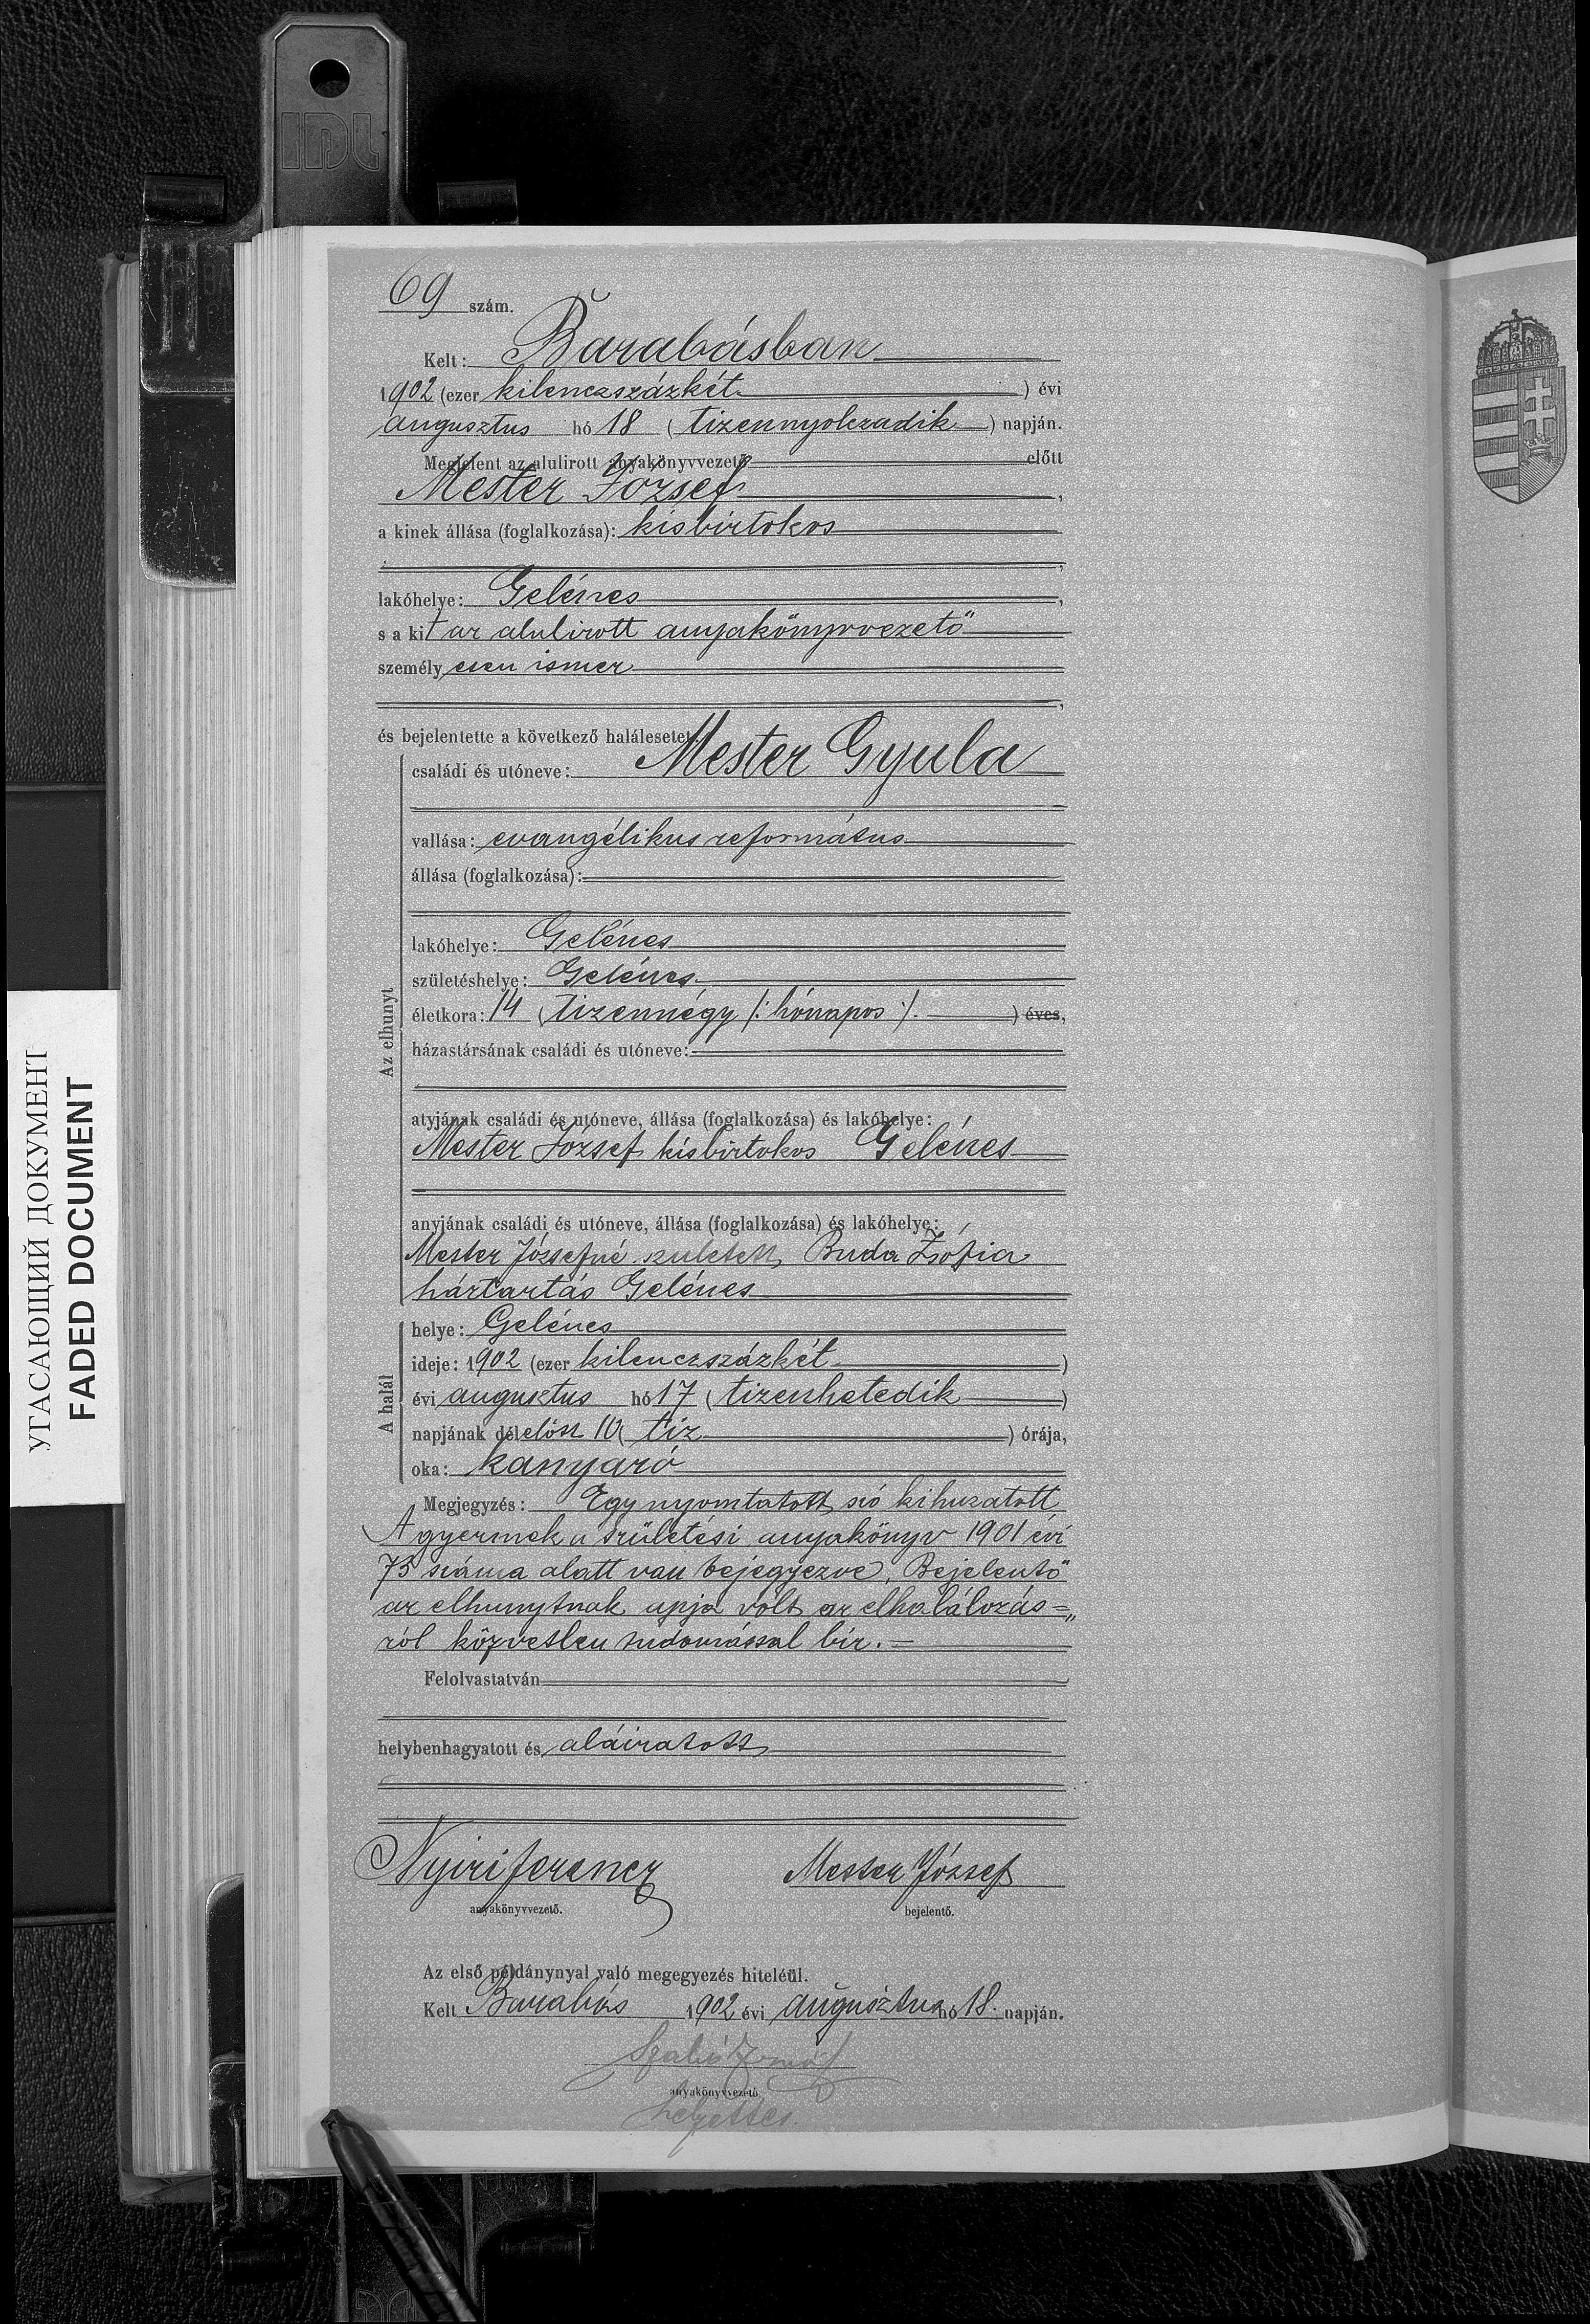 IDL
УГАСАЮЩИЙ ДОКУМЕНТ
FADED DOCUMENT
69 szám.
Kelt: Barabásban
1902 (ezer kilenczszázkét) évi
augusztus hó 18 (tizennyolczadik) napján.
Megjelent az alulirott anyakönyvvezető előtt
Mester József,
a kinek állása (foglalkozása): kisbirtokos
,
lakóhelye: Gelénes,
s a kit az alulirott anyakönyvvezető
személyesen ismer
,
és bejelentette a következő halálesetet:
Az elhunyt
családi és utóneve: Mester Gyula
vallása: evangélikus református
állása (foglalkozása):
lakóhelye: Gelénes
születéshelye: Gelénes
életkora: 14 (tizennégy /: hónapos :/. ) éves,
házastársának családi és utóneve:
atyjának családi és utóneve, állása (foglalkozása) és lakóhelye:
Mester József kisbirtokos Gelénes
anyjának családi és utóneve, állása (foglalkozása) és lakóhelye:
Mester Józsefné született Buda Zsófia
háztartás Gelénes
A halál
helye: Gelénes
ideje: 1902 (ezer kilenczszázkét)
évi augusztus hó 17 (tizenhetedik)
napjának délelőtt 10 (tiz) órája,
oka: kanyaró
Megjegyzés: Egy nyomtatott szó kihuzatott
A gyermek a születési anyakönyv 1901 évi
73 száma alatt van bejegyezve. Bejelentő
az elhunytnak apja volt az elhalálozás=„
ról közvetlen tudomással bir. –
Felolvastatván
helybenhagyatott és aláiratott
Nyiri Ferencz
anyakönyvvezető.
Mester József
bejelentő.
Az első példánynyal való megegyezés hiteléül.
Kelt Barabás 1902 évi augusztus hó 18. napján.
Szabó
anyakönyvvezető
helyettes